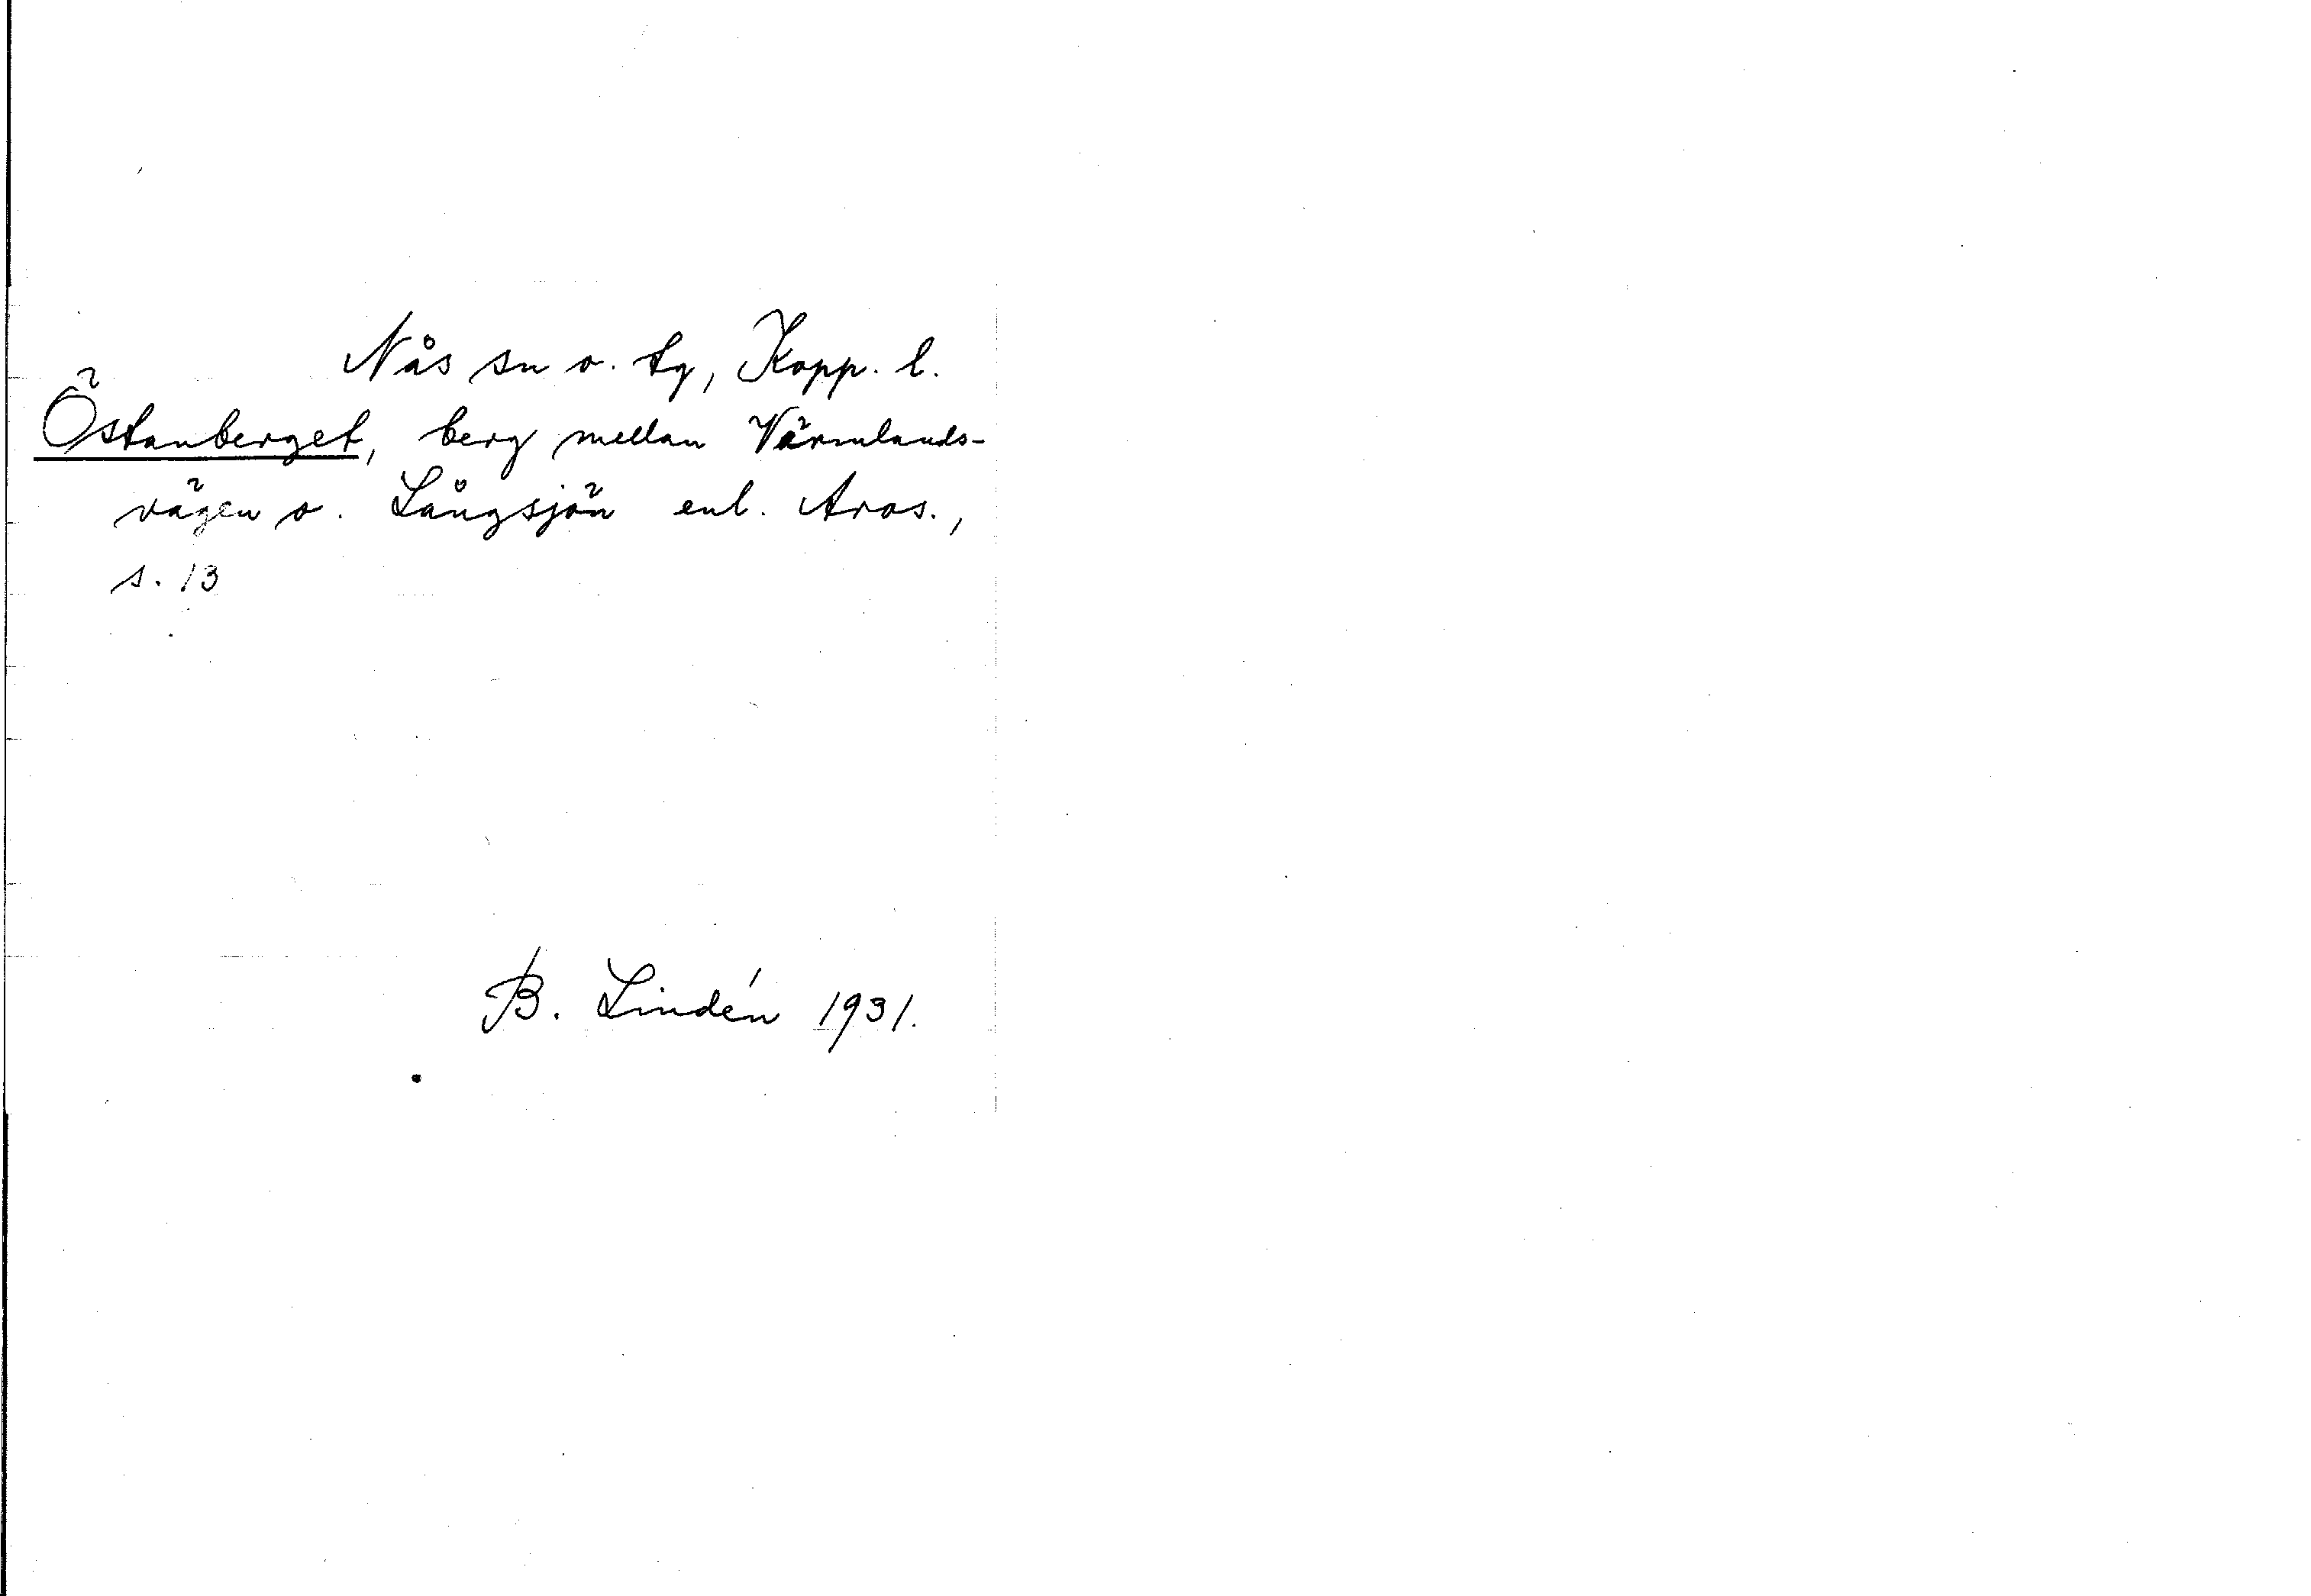 Nås sn o. tg, Kopp. l.
Östanberget, berg mellan Värmlands-
vägen o. Långsjön enl. Aros.,
s. 13
B. Lindén 1931.